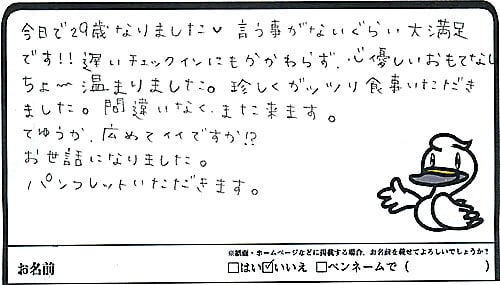 今日で29歳なりました♥ 言う事がないぐらい大満足
です!! 遅いチェックインにもかかわらず、心優しいおもてなし
ちょ〜温まりました。珍しくガッツリ食事いただき
ました。間違いなく、また来ます。
てゆうか、広めてイイですか!?
お世話になりました。
パンフレットいただきます。
※紙面・ホームページなどに掲載する場合、お名前を載せてよろしいでしょうか?
お名前 □はい ☑いいえ □ペンネームで ( )